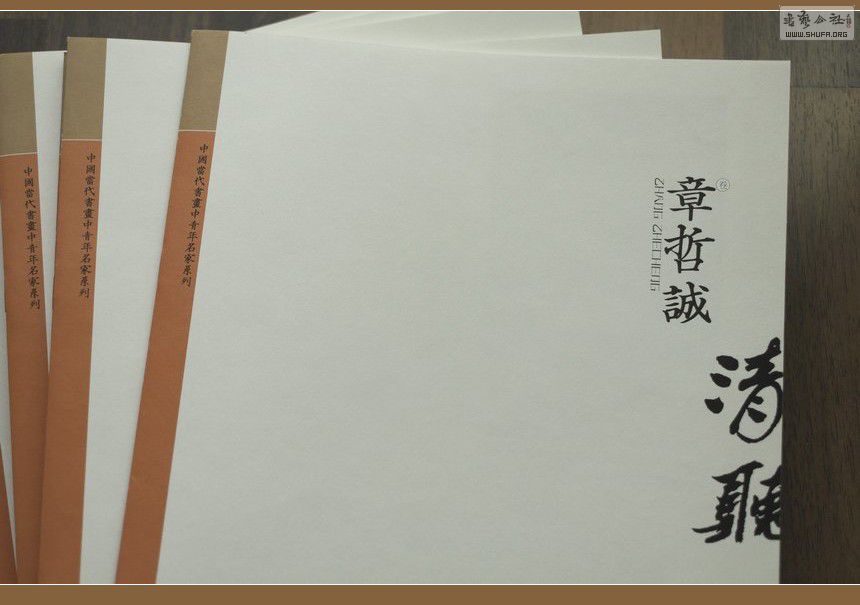 中國當代書畫中青年名家系列
中國當代書畫中青年名家系列
中國當代書畫中青年名家系列
章哲誠
ZHANG ZHECHENG
清聽
書藝公社
WWW.SHUFA.ORG